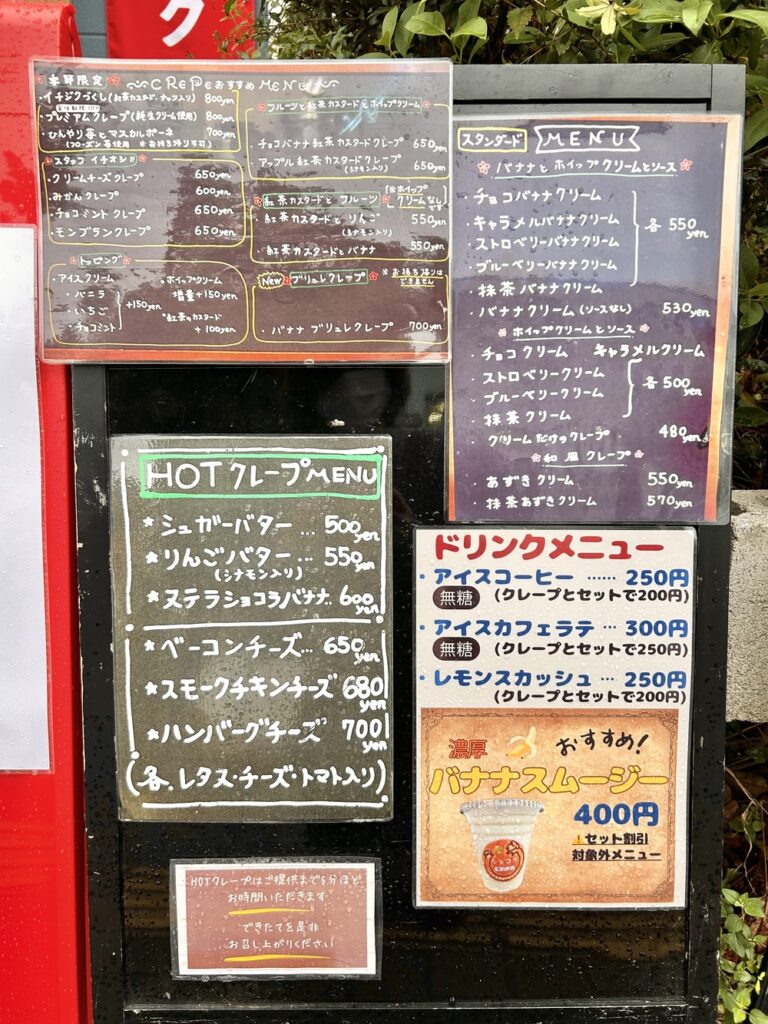 ク
季節限定
CREPEおすすめMENU
・イチジクづくし(紅茶カスタード、ナッツ入り) 800yen
・プレミアムクレープ(純生クリーム使用) 800yen
・ひんやり苺とマスカルポーネ 700yen
(フローズン苺使用 ※お持ち帰り不可)
スタッフイチオシ!!
・クリームチーズクレープ 650yen
・みかんクレープ 600yen
・チョコミントクレープ 650yen
・モンブランクレープ 650yen
トッピング
・アイスクリーム
・バニラ
・いちご
・チョコミント
+150yen
・ホイップクリーム
増量+150yen
・紅茶カスタード
+100yen
フルーツと紅茶カスタードとホイップクリーム
・チョコバナナ紅茶カスタードクレープ 650yen
・アップル紅茶カスタードクレープ 650yen
(シナモン入り)
紅茶カスタードとフルーツ
※ホイップクリームなしです
・紅茶カスタードとりんご 550yen
(シナモン入り)
・紅茶カスタードとバナナ 550yen
New ブリュレクレープ
※お持ち帰りはできません
・バナナブリュレクレープ 700yen
スタンダード MENU
バナナとホイップクリームとソース
・チョコバナナクリーム
・キャラメルバナナクリーム
・ストロベリーバナナクリーム
・ブルーベリーバナナクリーム
・抹茶バナナクリーム
各550yen
・バナナクリーム(ソースなし) 530yen
ホイップクリームとソース
・チョコクリーム キャラメルクリーム
・ストロベリークリーム
・ブルーベリークリーム
・抹茶クリーム
各500yen
・クリームだけのクレープ 480yen
和風クレープ
・あずきクリーム 550yen
・抹茶あずきクリーム 570yen
HOTクレープMENU
★シュガーバター… 500yen
★りんごバター… 550yen
(シナモン入り)
★ヌテラショコラバナナ.. 600yen
★ベーコンチーズ… 650yen
★スモークチキンチーズ 680yen
★ハンバーグチーズ 700yen
(各.レタス・チーズ・トマト入り)
ドリンクメニュー
・アイスコーヒー …… 250円
無糖 (クレープとセットで200円)
・アイスカフェラテ … 300円
無糖 (クレープとセットで250円)
・レモンスカッシュ … 250円
(クレープとセットで200円)
濃厚 おすすめ!
バナナスムージー
400円
⚠セット割引
対象外メニュー
HOTクレープはご提供まで5分ほど
お時間いただきます
できたてを是非
お召し上がりください